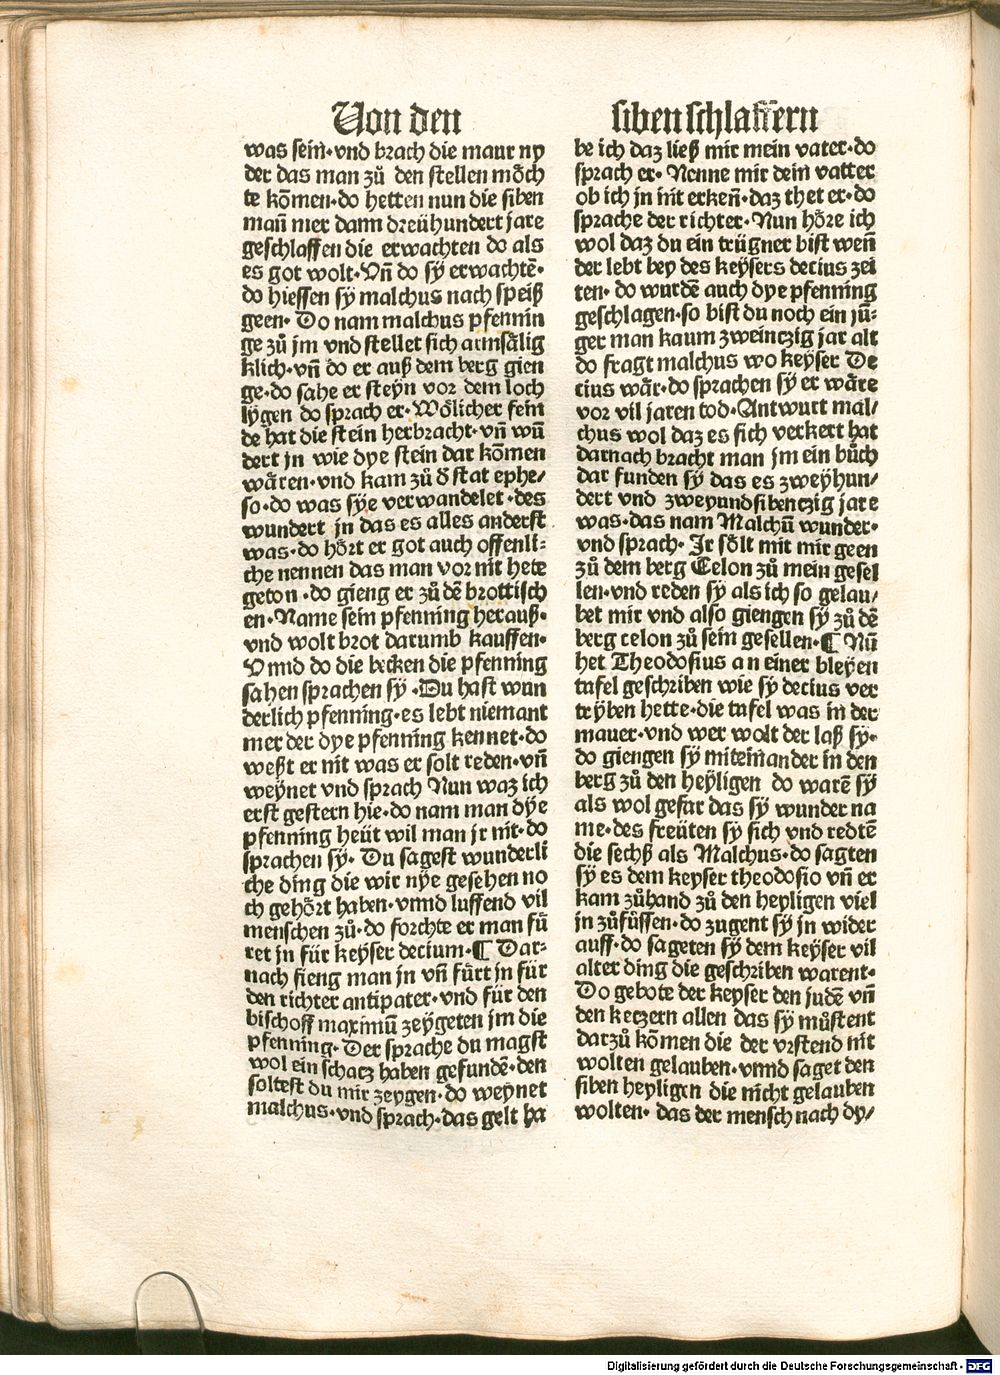 Von den
was sein·vnd brach die maur ny
der das man zů den stellen mȯch
te kōmen·do hetten nun die siben
mañ mer dann dreühundert jare
geschlaffen die erwachten do als
es got wolt·Vñ do sÿ erwachtē·
do hiessen sÿ malchus nach speiß
geen· Do nam malchus pfennin
ge zů jm vnd stellet sich armsålig
klich·vñ do er auß dem berg gien
ge·do sahe er steyn vor dem loch
lygen do sprach er·Wȯlicher fein
de hat die stein herbracht·vñ wū
dert jn wie dye stein dar kōmen
wåren·vnd kam zů d̄ stat ephe/
so·do was sÿe verwandelet·des
wundert jn das es alles anderst
was·do hȯrt er got auch offenli⸗
che nennen das man vor nit hete
geton·do gieng er zů dē brottisch
en·Name sein pfenning herauß·
vnd wolt brot darumb kauffen·
Vnnd do die becken die pfenning
sahen sprachen sÿ·Du hast wun
derlich pfenning·es lebt niemant
mer der dye pfenning kennet·do
weßt er nit was er solt reden·vñ
weynet vnd sprach Nun waz ich
erst gestern hie·do nam man dÿe
pfenning heüt wil man jr nit·do
sprachen sÿ· Du sagest wunderli
che ding die wir nÿe gesehen no
ch gehȯrt haben·vnnd luffend vil
menschen zů·do forchte er man fů
ret jn für keÿser decium·¶ Dar⸗
nach fieng man jn vñ fůrt jn für
den richter antipater·vnd für den
bischoff maximū zeÿgeten jm die
pfenning· Der sprache du magst
wol ein schacz haben gefundē·den
soltest du mir zeygen·do weynet
malchus·vnd sprach·das gelt ha
siben schlaffern
be ich daz ließ mir mein vater·do
sprach er· Nenne mir dein vatter
ob ich jn nit erkeñ·daz thet er·do
sprache der richter·Nun hȯre ich
wol daz du ein trügner bist weñ
der lebt bey des keÿsers decius zei
ten· do wurdē auch dye pfenning
geschlagen·so bist du noch ein jū⸗
ger man kaum zweinczig jar alt
do fragt malchus wo keÿser De
cius wår·do sprachen sÿ er wåre
vor vil jaren tod·Antwurt mal/
chus wol daz es sich verkert hat
darnach bracht man jm ein bůch
dar funden sÿ das es zweÿhun/
dert vnd zweyundsibenczig jare
was·das nam Malchū wunder·
vnd sprach· Ir sȯlt mit mir geen
zů dem berg Celon zů mein gesel
len·vnd reden sÿ als ich so gelau/
bet mir vnd also giengen sÿ zů dē
berg celon zů sein gesellen·¶ Nū
het Theodosius an einer bleyen
tafel geschriben wie sÿ decius ver
trÿben hette·die tafel was in der
mauer·vnd wer wolt der laß sÿ·
do giengen sÿ miteinander in den
berg zů den heÿligen do warē sÿ
als wol gefar das sÿ wunder na
me·des freüten sÿ sich vnd redtē
die sechß als Malchus·do sagten
sÿ es dem keyser theodosio vñ er
kam zůhand zů den heyligen viel
jn zůfüssen·do zugent sÿ jn wider
auff·do sageten sÿ dem keÿser vil
alter ding die geschriben warent·
Do gebote der keyser den judē vñ
den keczern allen das sÿ můstent
darzů kōmen die der vrstend nit
wolten gelauben·vnnd saget den
siben heyligen die nicht gelauben
wolten· das der mensch nach dy/
Digitalisierung gefördert durch die Deutsche Forschungsgemeinschaft - DFG